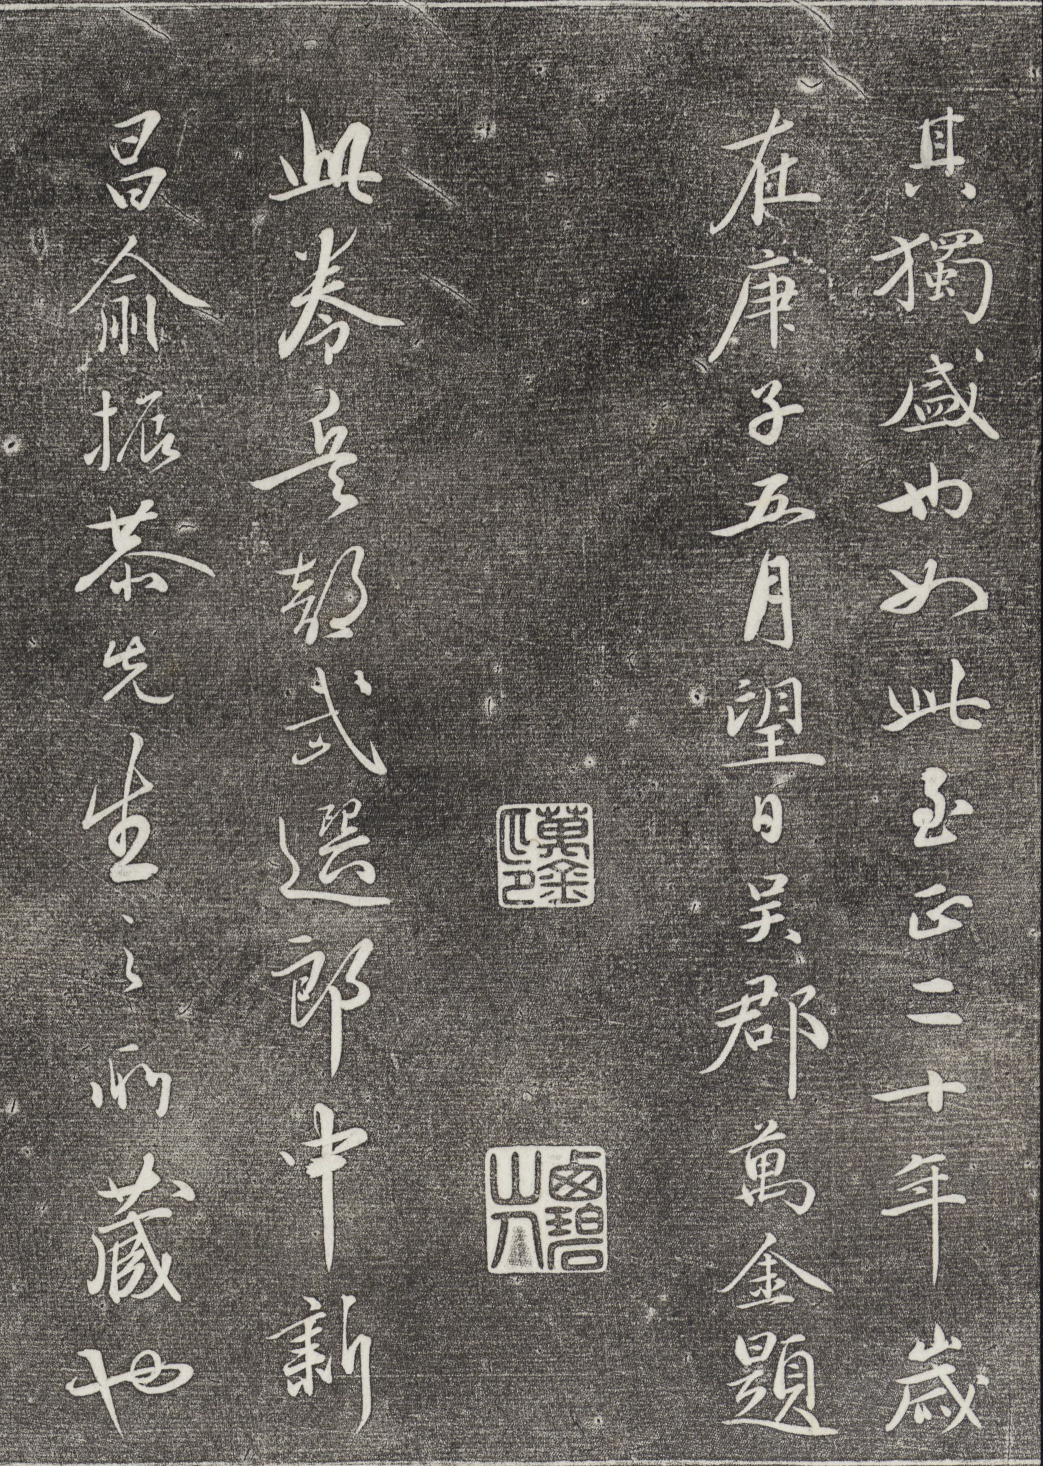 其獨盛也如此至正二十年歲
在庚子五月望日吴郡萬金題
萬金
此卷兵部武選郎中新
昌俞振恭先生之所藏也